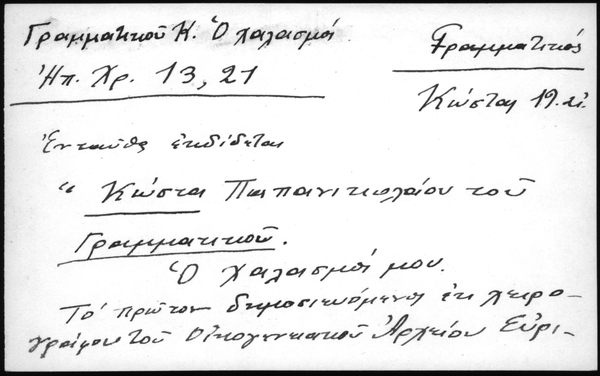 Γραμματικοῦ Κ. Ὁ χαλασμός
Ἠπ. Χρ. 13, 21
Γραμματικός
Κώστας 19. αἰ.
Ἐνταῦθα ἐκδίδεται
“ Κώστα Παπανικολαίου τοῦ
Γραμματικοῦ.
Ὁ χαλασμός μου.
Τό πρῶτον δημοσιευόμενος ἐκ χειρο-
γράφου τοῦ Οἰκογενειακοῦ Ἀρχείου Εὐρι-